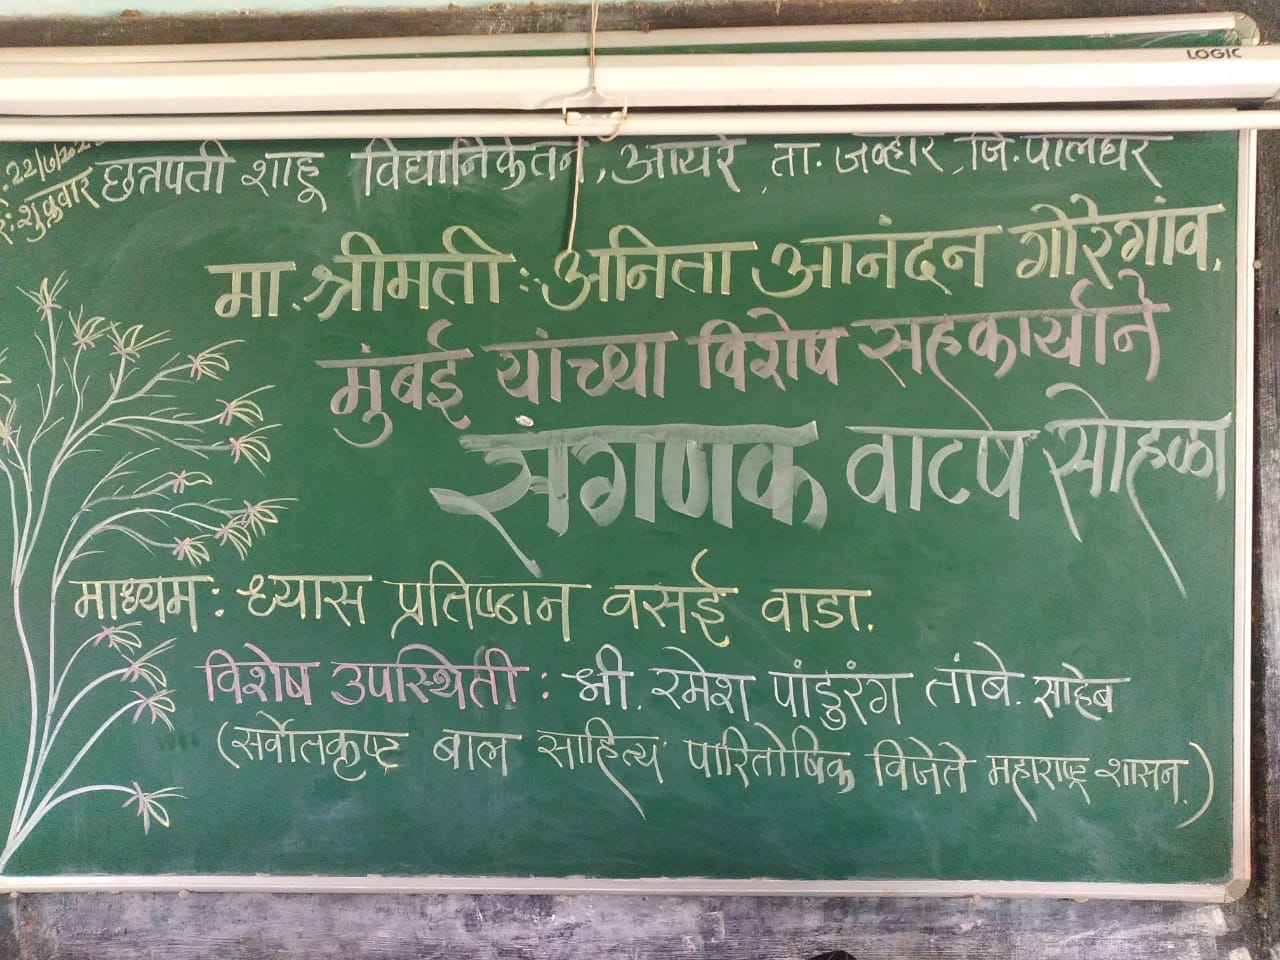 LOGIC
22/7/202
शुक्रवार
छत्रपती शाहू विद्यानिकेतन, आयरे ता. जव्हार, जि. पालघर
मा. श्रीमती : अनिता आनंदन गोरेगांव.
मुंबई यांच्या विशेष सहकार्याने
संगणक वाटप सोहळा
माध्यम : ध्यास प्रतिष्ठान वसई वाडा.
विशेष उपस्थिती : श्री. रमेश पांडुरंग तांबे. साहेब
(सर्वोतकृष्ट बाल साहित्य पारितोषिक विजेते महाराष्ट्र शासन.)